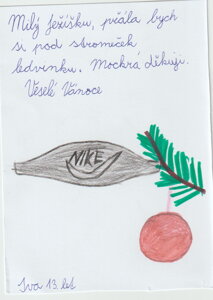 Milý Ježíšku, přála bych
si pod stromeček
ledvinku. Mockrá děkuji.
Veselé Vánoce
NIKE
Iva 13. let